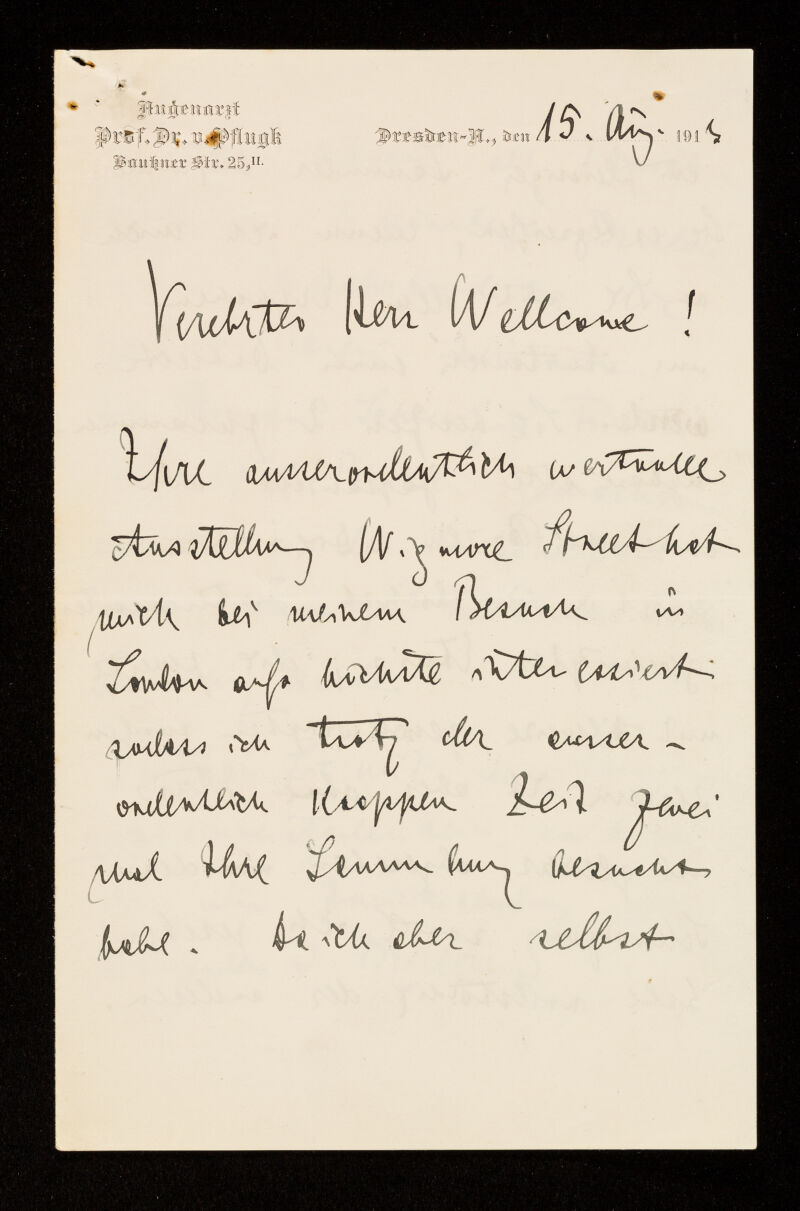 Augenarzt
Prof. Dr. v. Pflugk
Bautzner Str. 25, II.
Dresden-N., den 15. Aug. 1913
Verehrter Herr Wellcome!
Ihre ausserordentlich wertvolle
Ausstellung Wigmore Street hat
mich bei meinem Besuch in
London aufs höchste interessiert
sodass ich trotz der ausser-
ordentlich knappen Zeit zwei
mal Ihre Sammlung besucht
habe. Da ich aber selbst